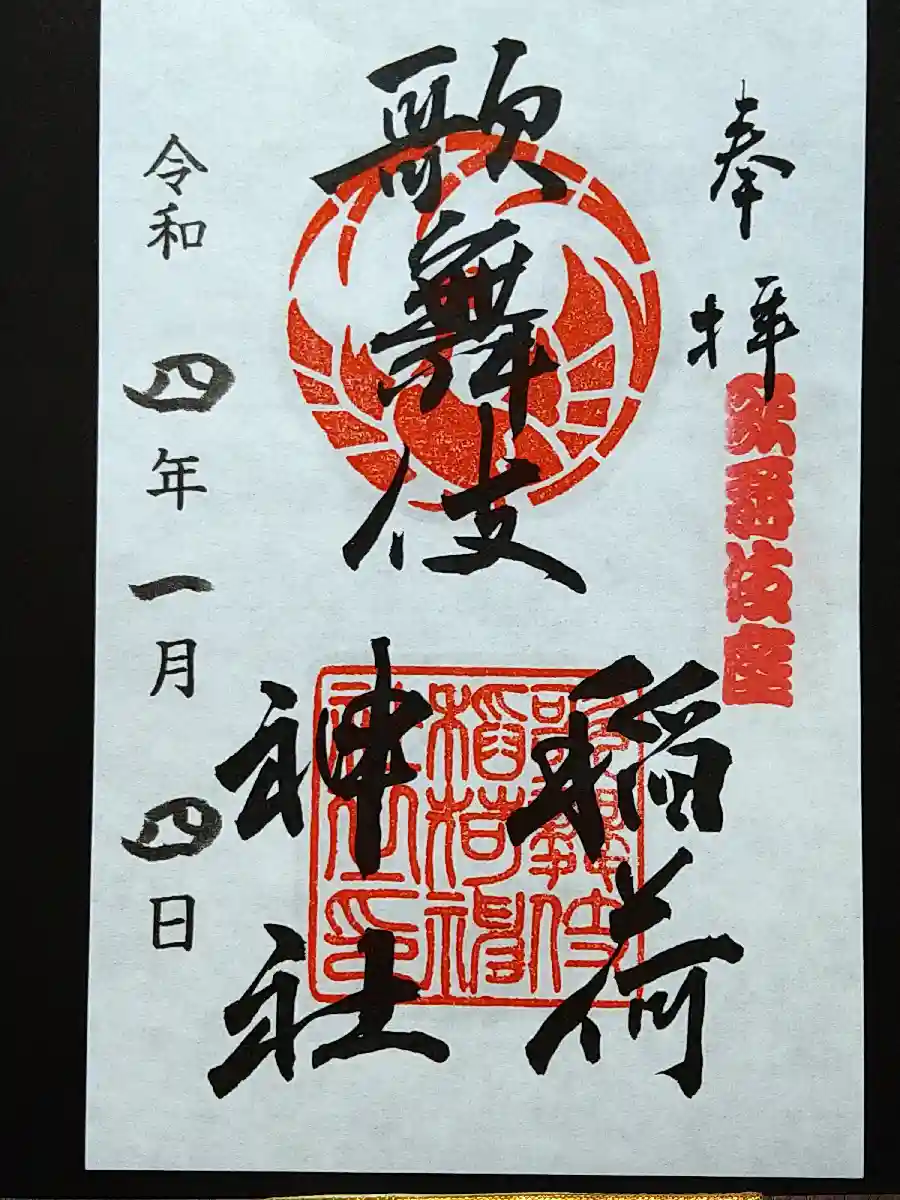 奉拝
歌舞伎座
歌舞伎
稲荷
神社
歌舞伎
稲荷神
社之印
令和四年一月四日